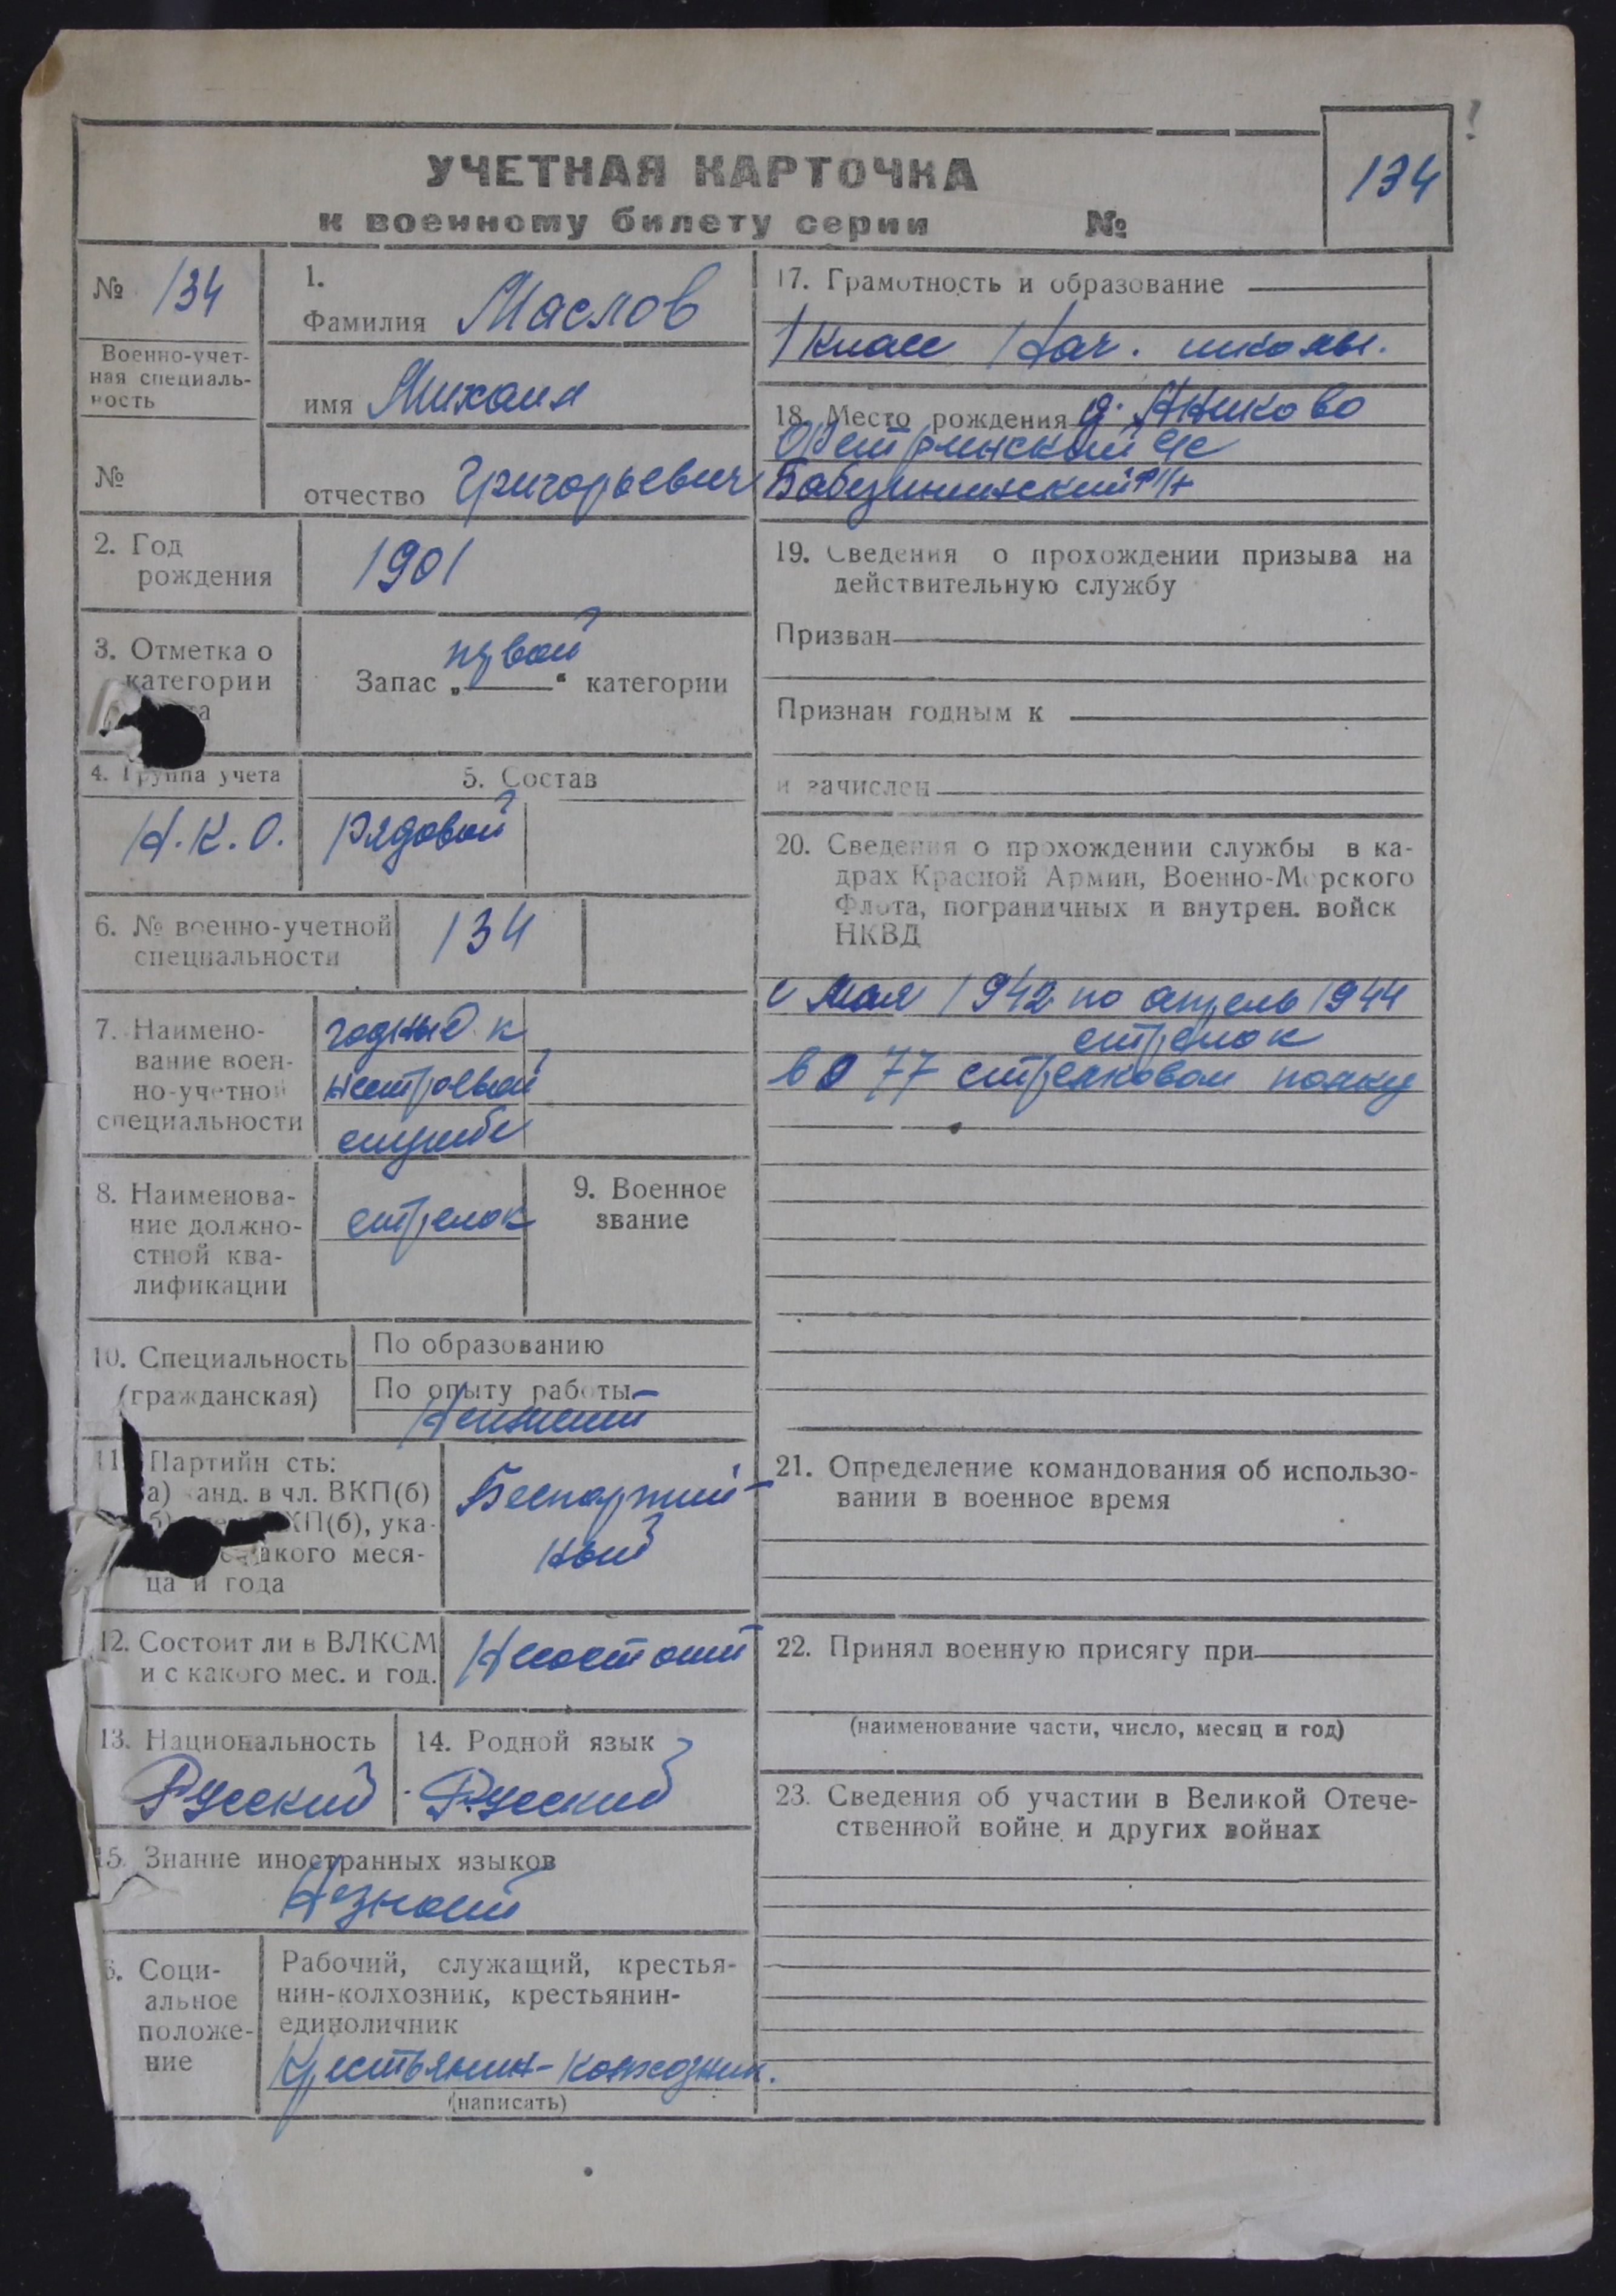 УЧЕТНАЯ КАРТОЧКА
к военному билету серии №
134
№ 134
Военно-учет-
ная специаль-
ность
№
1.
Фамилия Маслов
имя Михаил
отчество Григорьевич
2. Год
рождения
1901
3. Отметка о
категории
Запас „первой“ категории
4. Группа учета
Н.К.О.
5. Состав
Рядовой
6. № военно-учетной
специальности
134
7. Наимено-
вание воен-
но-учетной
специальности
годный к
нестроевой
службе
8. Наименова-
ние должно-
стной ква-
лификации
стрелок
9. Военное
звание
10. Специальность
(гражданская)
По образованию
По опыту работы
11. Партийн сть:
а) канд. в чл. ВКП(б)
ВКП(б), ука-
какого меся-
ца и года
Беспартий-
ный
12. Состоит ли в ВЛКСМ
и с какого мес. и год.
Несостоит
13. Национальность
Русский
14. Родной язык
Русский
15. Знание иностранных языков
Незнает
6. Соци-
альное
положе-
ние
Рабочий, служащий, крестья-
нин-колхозник, крестьянин-
единоличник
Крестьянин-колхозник.
(написать)
17. Грамотность и образование
1 класс Нач. школы.
18. Место рождения д. Аниково
с/с
Бабушкинский р/н
19. Сведения о прохождении призыва на
действительную службу
Призван
Признан годным к
и зачислен
20. Сведения о прохождении службы в ка-
драх Красной Армии, Военно-Морского
Флота, пограничных и внутрен. войск
НКВД
с мая 1942 по апрель 1944
стрелок
в 77 стрелковом полку
21. Определение командования об использо-
вании в военное время
22. Принял военную присягу при
(наименование части, число, месяц и год)
23. Сведения об участии в Великой Отече-
ственной войне и других войнах